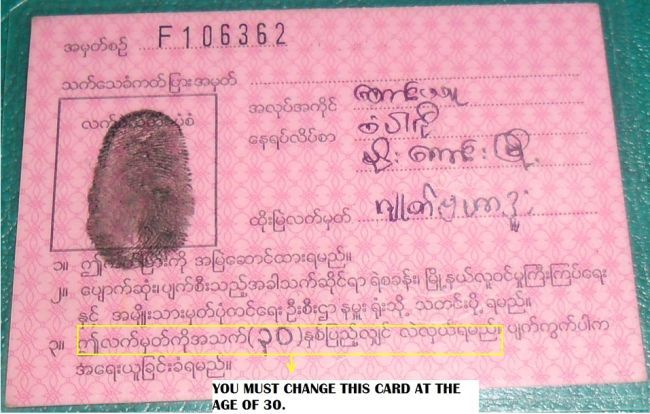 အမှတ်စဉ် F106362
သက်သေခံကတ်ပြားအမှတ်
အလုပ်အကိုင် ကျောင်းသူ
နေရပ်လိပ်စာ
မိုးကောင်းမြို့
ထိုးမြဲလက်မှတ်
၁။ ဤ ကို အမြဲဆောင်ထားရမည်။
၂။ ပျောက်ဆုံး၊ ပျက်စီးသည့်အခါသက်ဆိုင်ရာ ရဲစခန်း၊ မြို့နယ်လူဝင်မှုကြီးကြပ်ရေး
နှင့် အမျိုးသားမှတ်ပုံတင်ရေး ဦးစီးဌာနမှူးရုံးသို့ သတင်းပို့ ရမည်။
၃။ ဤလက်မှတ်ကိုအသက်(၃၀)နှစ်ပြည့်လျှင် လဲလှယ်ရမည်။ ပျက်ကွက်ပါက
အရေးယူခြင်းခံရမည်။
YOU MUST CHANGE THIS CARD AT THE
AGE OF 30.